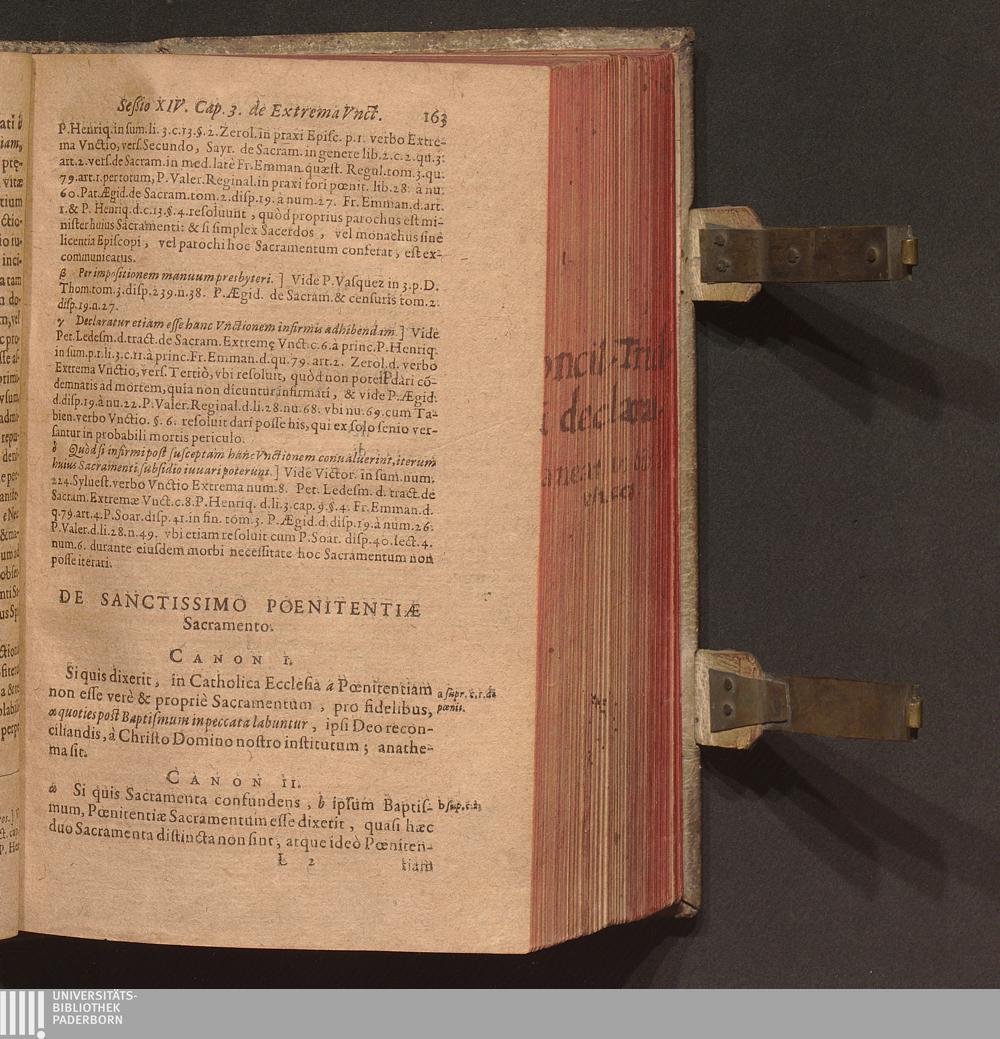 Sessio XIV. Cap. 3. de Extrema Vnct. 163
P.Henriq.in sum.li.3.c.13.§.2.Zerol.in praxi Episc. p.1. verbo Extre-
ma Vnctio, vers.Secundo, Sayr. de Sacram. in genere lib.2.c.2.qu.3:
art.2.vers.de Sacram.in med.latè Fr.Emman.quæst. Regul.tom.3.qu:
79.art.1.per totum, P.Valer.Reginal.in praxi fori pœnit. lib.28. à nu:
60.Pat.Ægid.de Sacram.tom.2.disp.19. à num.27. Fr. Emman.d.art.
1.& P. Henriq.d.c.13.§.4.resoluunt, quòd proprius parochus est mi-
nister huius Sacramenti: & si simplex Sacerdos, vel monachus sine
licentia Episcopi, vel parochi hoc Sacramentum conferat, est ex-
communicatus.
β Per impositionem manuum presbyteri. ] Vide P.Vasquez in 3.p.D.
Thom.tom.3.disp.239.n.38. P.Ægid. de Sacram.& censuris tom.2:
disp.19.n.27.
γ Declaratur etiam esse hanc Vnctionem infirmis adhibendam.] Vide
Pet.Ledesm.d.tract.de Sacram.Extremę Vnct.c.6.à princ.P.Henriq.
in sum.p.1.li.3.c.11.à princ.Fr.Emman.d.qu.79. art.2. Zerol.d. verbo
Extrema Vnctio, vers. Tertiò, vbi resoluit, quòd non potest dari cō-
demnatis ad mortem, quia non dicuntur infirmati, & vide P.Ægid:
d.disp.19.à nu.22.P.Valer.Reginal.d.li.28.nu.68. vbi nu.69.cum Ta-
bien.verbo Vnctio. §.6. resoluit dari posse his, qui ex solo senio ver-
santur in probabili mortis periculo.
δ Quòd si infirmi post susceptam hanc Vnctionem conualuerint, iterum
huius Sacramenti subsidio iuuari poterunt.] Vide Victor. in sum.num.
224.Syluest.verbo Vnctio Extrema num.8. Pet. Ledesm. d. tract.de
Sacram.Extremæ Vnct.c.8.P.Henriq. d.li.3.cap.9.§.4. Fr.Emman.d.
q.79.art.4.P.Soar.disp.41.in fin. tom.3. P.Ægid.d.disp.19.à num.26:
P.Valer.d.li.28.n.49. vbi etiam resoluit cum P.Soar. disp.40.sect.4.
num.6. durante eiusdem morbi necessitate hoc Sacramentum non
posse iterari.
DE SANCTISSIMO POENITENTIÆ
Sacramento.
CANON I.
Si quis dixerit, in Catholica Ecclesia a Pœnitentiam
non esse verè & propriè Sacramentum, pro fidelibus,
quoties post Baptismum in peccata labuntur, ipsi Deo recon-
ciliandis, à Christo Domino nostro institutum; anathe-
ma sit.
a supr. c.1.de
pœnit.
CANON II.
Si quis Sacramenta confundens, b ipsum Baptis-
mum, Pœnitentiæ Sacramentum esse dixerit, quasi hæc
duo Sacramenta distincta non sint, atque ideò Pœniten-
b sup.c.2.
L 2 tiam
declara
UNIVERSITÄTS-
BIBLIOTHEK
PADERBORN